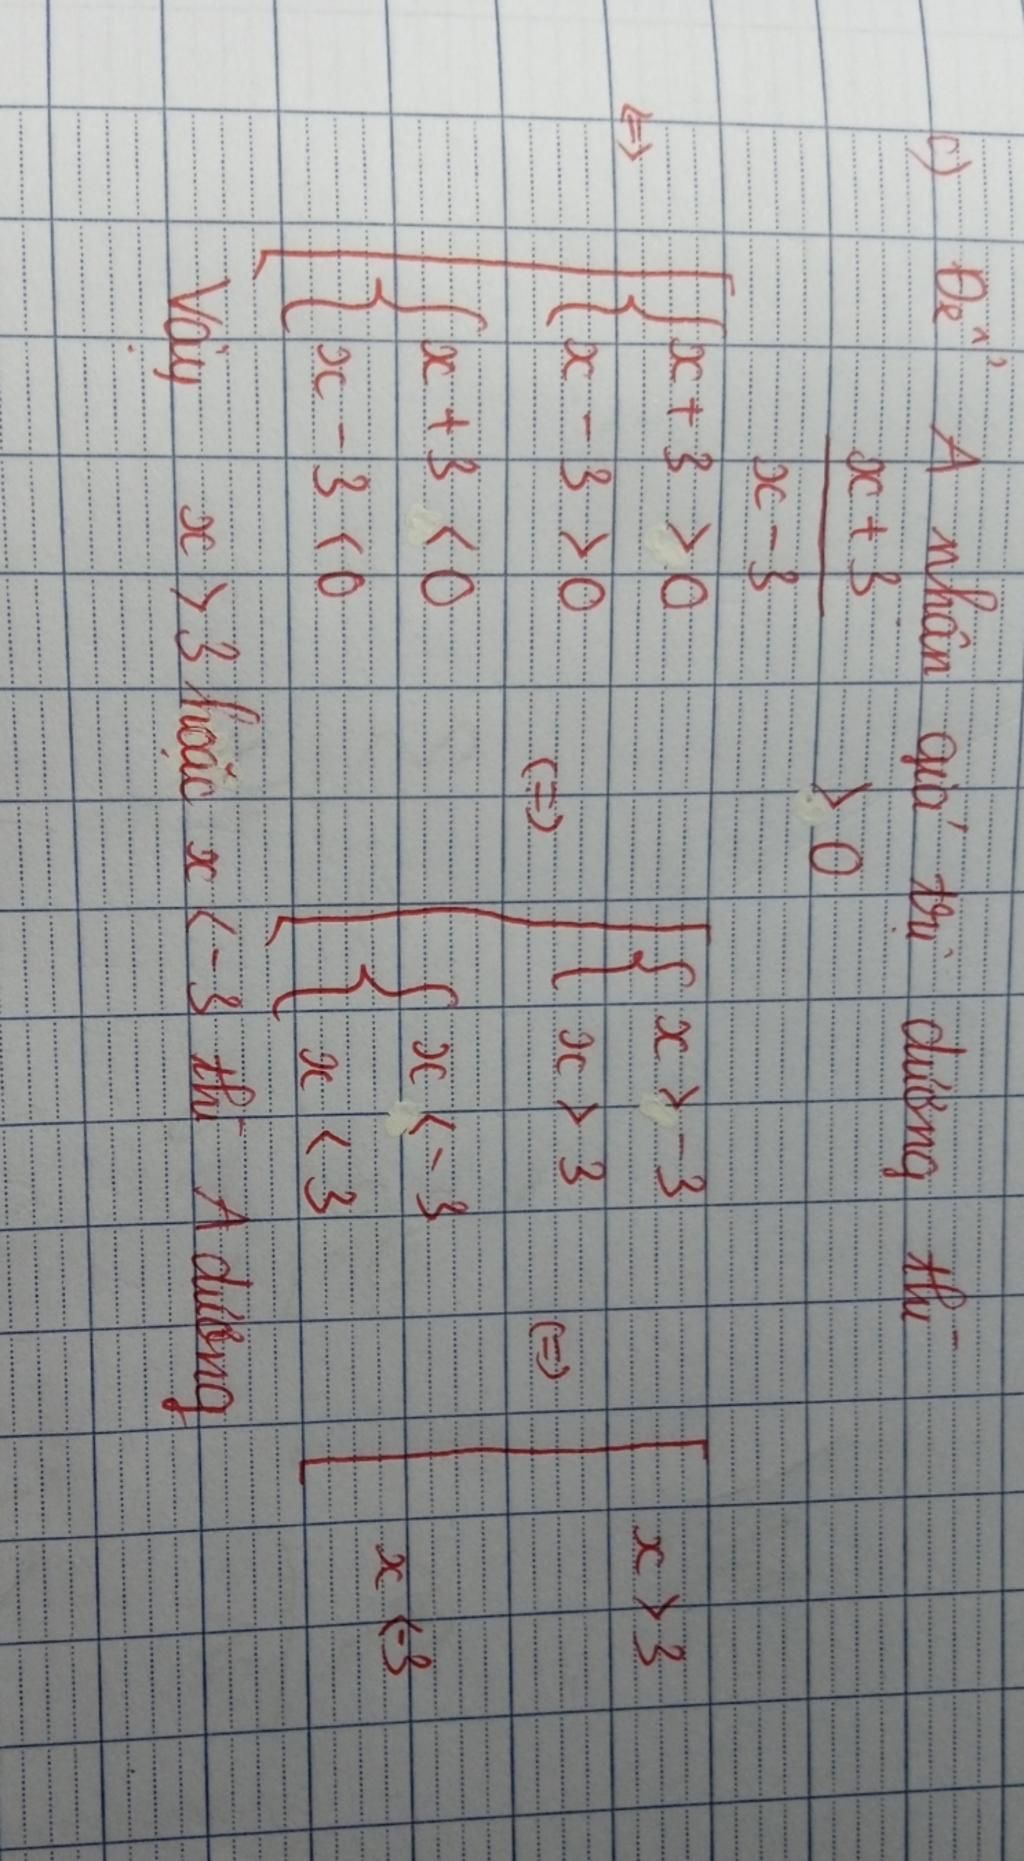 c) Để A nhân giá trị dương thì
x + 3
x - 3
> 0
⇔
x + 3 > 0
x - 3 > 0
x + 3 < 0
x - 3 < 0
(=)
x > -3
x > 3
x < -3
x < 3
(=)
x > 3
x < -3
Vậy x > 3 hoặc x < -3 thì A dương